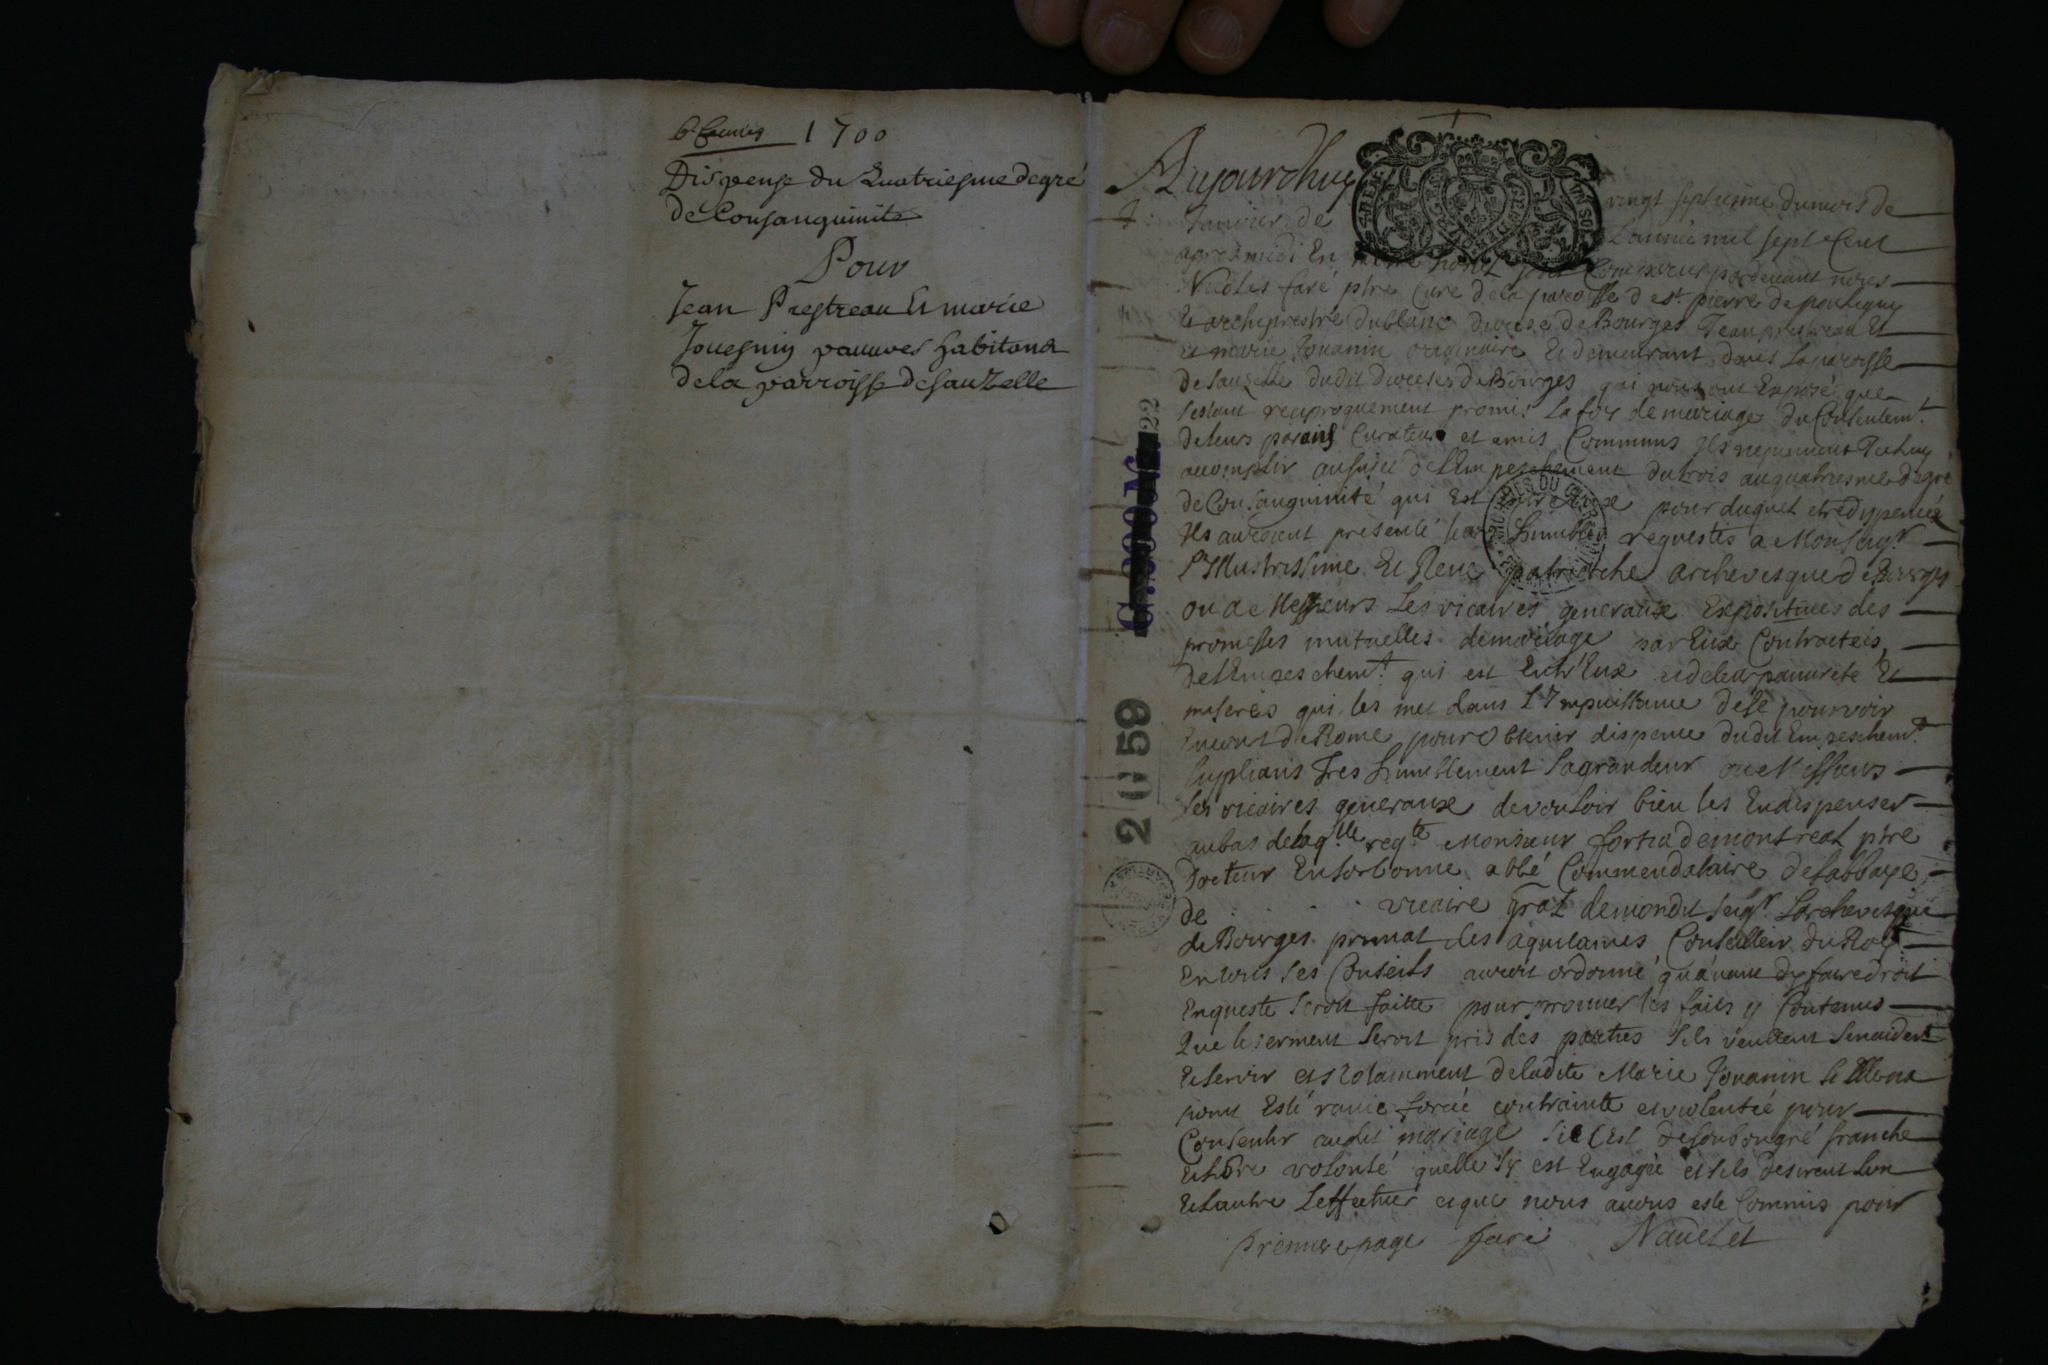 1700
Dispense du Quatriesme degré
de Consanguinite
Pour
Jean Prestreau Et marie
Jouesnin pauuves habitans
de la parroisse de sauzelle
Aujourdhuy vingt septiesme du mois de
Januier de L'année mil sept Cent
apres midi En par deuant nous
Nicolas faré ptre Curé de la paroisse de st. pierre de pouligny
Et archiprestre du blanc diocese de Bourges Jean prestreau Et
Et marie Jouanin originaire Et demeurant dans la paroisse
de sauzelle dudit diocese de Bourges qui nous ont Exposé que
sestant reciproquement promis la foy de mariage du Consentemt.
de leurs parains Curateurs et amis Communs Ils
accomplir au sujet de lEmpeschement du trois au quatriesme degré
de Consanguinité qui Est entre Eux pour duquel etre dispensés
Ils auroient presenté leurs humbles requestes a Monseigr
L'Illustrissime Et Reue patriarche archevesque de Bourges
ou a Messieurs Les vicaires generaux Expositiues des
promesses mutuelles de mariage par Eux Contractées,
de lEmpeschemt. qui est Entr'Eux et de leur pauureté Et
miseres qui les met dans L'Impuissance de se pourvoir
En court de Rome pour obtenir dispence dudit Empeschemt.
suplians Tres humblement sa grandeur ou Messieurs
les vicaires generaux de vouloir bien les En dispenser
au bas de laqlle. reqte Monsieur fortia de montreal ptre
Docteur En sorbonne abbé Commendataire de labbaye
de vicaire gral de mondit seigr. Larchevesque
de Bourges primat des aquitaines Conseiller du Roy
En tous ses Conseils auroit ordonné qu'auant dy faire droit
Enqueste seroit faitte pour prouuer les faits y Contenus
Que le serment seroit pris des parties sils veullent senaider
Et servir et notamment de ladite Marie Jouanin si Elle na
point Esté rauie forcée contrainte et violentée pour
Consentir audit mariage si cest de son bon gré franche
Et libre volonté quelle sy est Engagée et sils desirent lun
Et lautre leffectuer et que nous auons esté Commis pour
premiere page faré Nauelet
22
2 G 59